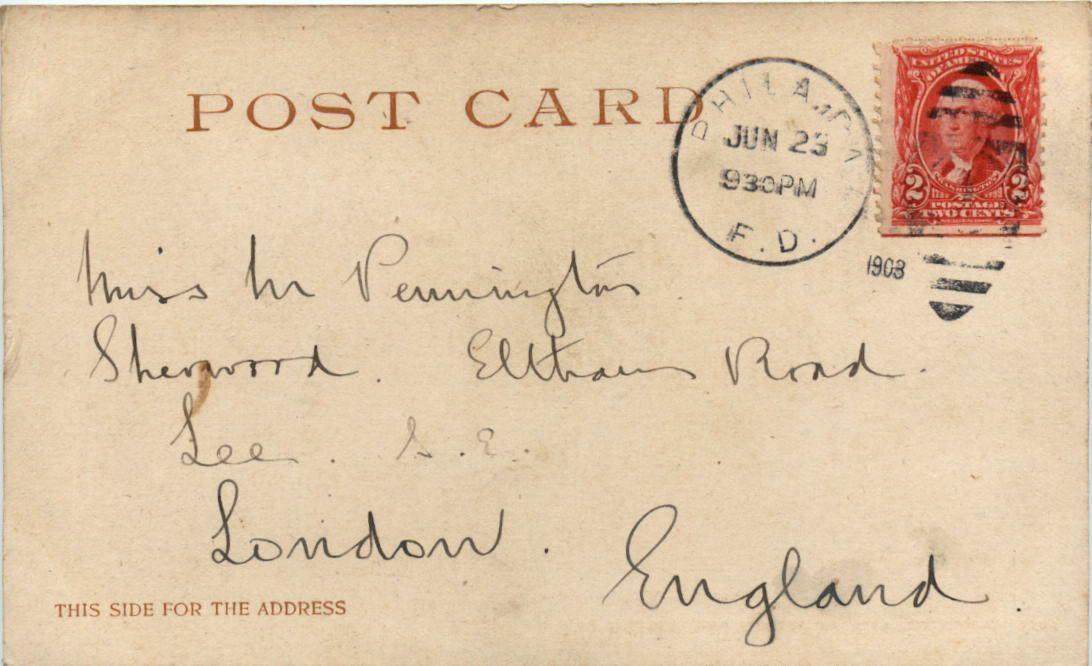 POST CARD
PHILA, PA
JUN 23
930PM
F.D.
1903
UNITED STATES
OF AMERICA
WASHINGTON
2 2
POSTAGE
TWO CENTS
Miss M Pennington
Sherwood. Eltham Road.
Lee. S.E.
London. England.
THIS SIDE FOR THE ADDRESS